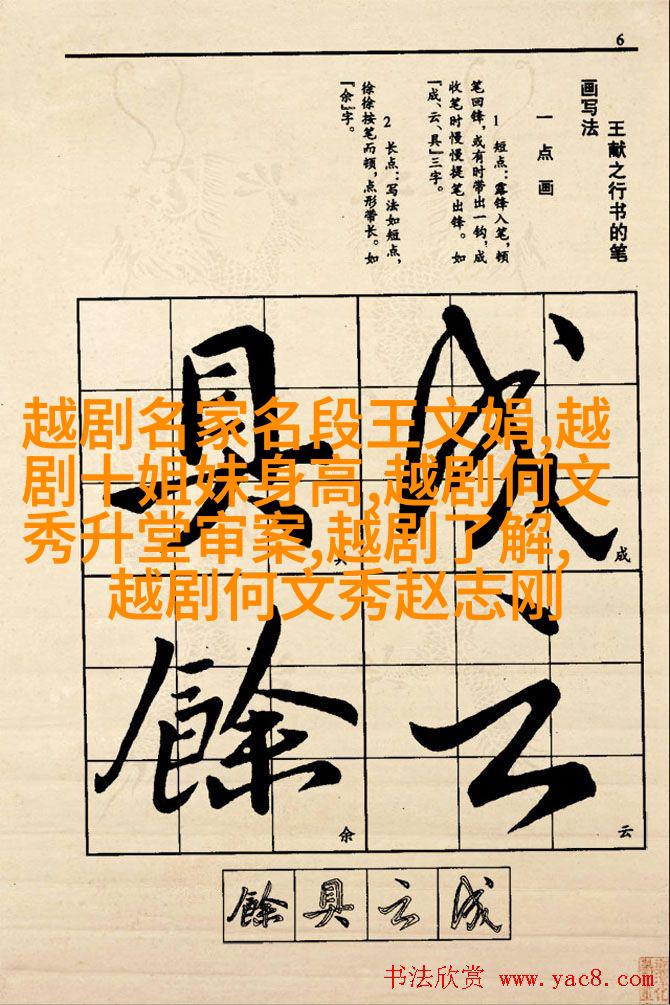 6
王献之行书的笔
画写法
一 点 画
1 短点：露锋入笔，顿
笔回锋，或有时带出一钩，成
收笔时慢慢提笔出锋。如
「成、云、具」三字。
2 长点：写法如短点，
徐徐按笔而顿，点形带长。如
「余」字。
越剧名家名段王文娟,越
剧十姐妹身高,越剧何文
秀升堂审案,越剧了解,
越剧何文秀赵志刚
成
具
成
具
云
餘
云
余
餘 具 云 成
书法欣赏 www.yac8.com